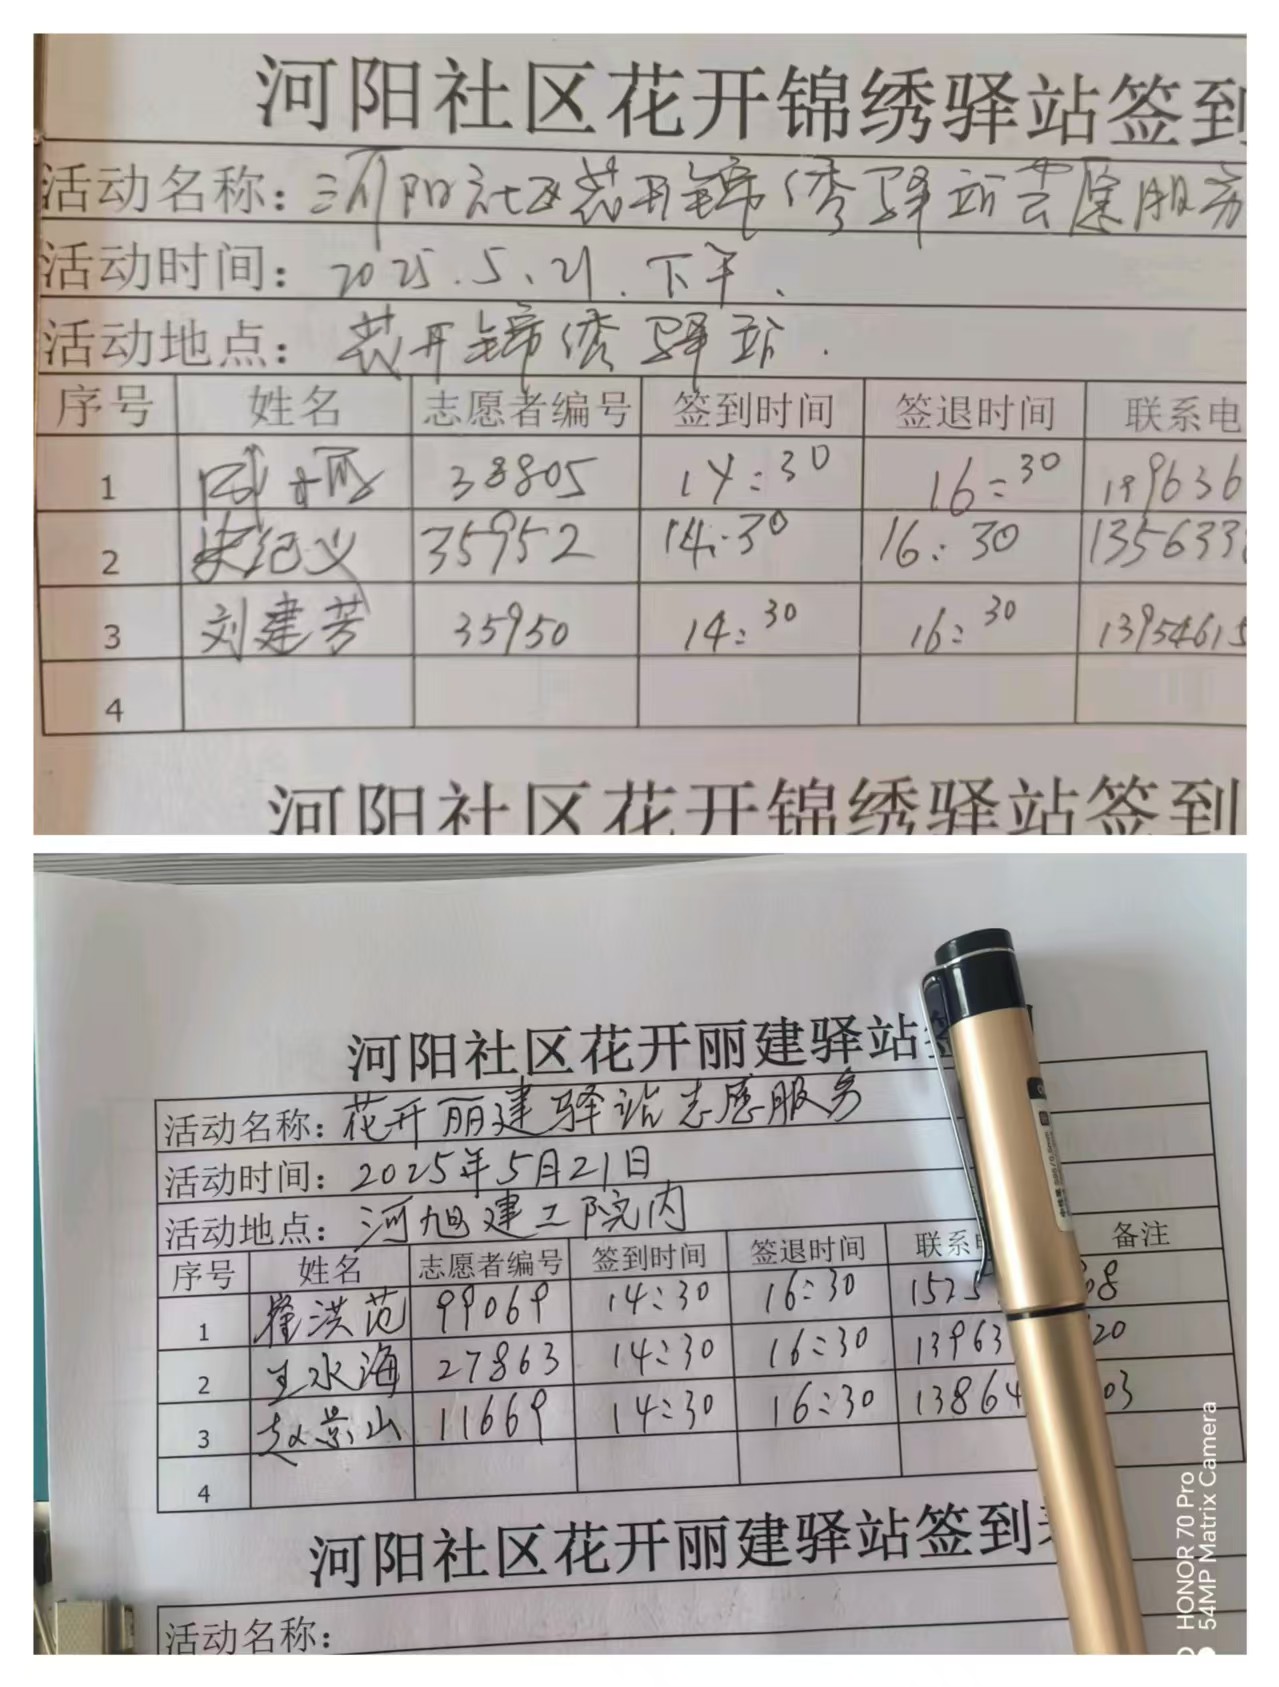 河阳社区花开锦绣驿站签到
活动名称：河阳社区花开锦绣驿站志愿服务
活动时间：2025.5.21.下午.
活动地点：花开锦绣驿站.
序号 姓名 志愿者编号 签到时间 签退时间 联系电
1 38805 14:30 16:30 199636
2 宋纪义 35952 14:30 16:30 135633
3 刘建芳 35950 14:30 16:30 13954615
4
河阳社区花开锦绣驿站签到
河阳社区花开丽建驿站签
活动名称：花开丽建驿站志愿服务
活动时间：2025年5月21日
活动地点：河旭建工院内
序号 姓名 志愿者编号 签到时间 签退时间 联系 备注
1 崔洪范 99069 14:30 16:30 1525 68
2 王水海 27863 14:30 16:30 13963 20
3 赵景山 11669 14:30 16:30 13864 03
4
河阳社区花开丽建驿站签到表
活动名称：
HONOR 70 Pro
54MP Matrix Camera